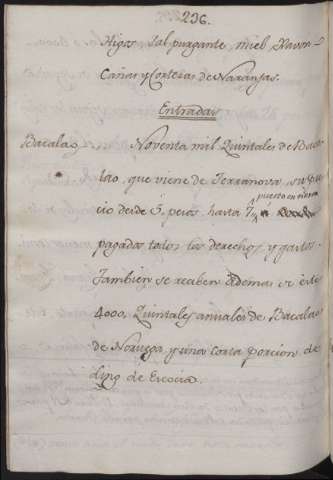 236.
Higos sal purgante miel Ravon
Cañas y Cortezas de Naranjas.
Entradas
Bacalao Noventa mil Quintales de Baca-
lao, que viene de Terranova, su pre-
puesto en
cio desde 5. pesos hasta 7
pagados todos los derechos, y gastos.
Tambien se reciben ademas de este
4000, Quintales anuales de Bacalao
de Noruega y una corta porcion de
dho de Escocia.